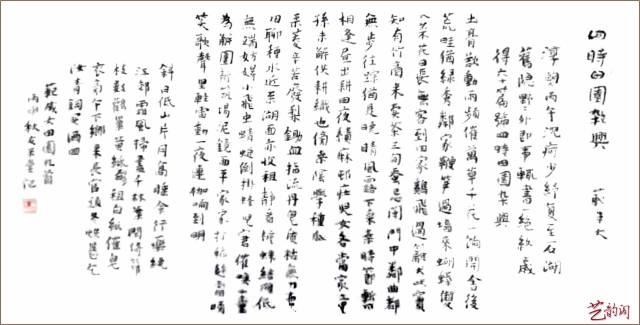 四時田園雜興　范成大
淳熙丙午沉疴少紓復至石湖
舊隱野外即事輒書一絕終歲
得六十篇號四時田園雜興
土膏欲動雨頻催萬草千花一餉開舍後
荒畦猶綠秀鄰家鞭筍過牆來蝴蝶雙雙
入菜花日長無客到田家雞飛過籬犬吠竇
知有行商來賣茶三旬蠶忌閉門中鄰曲都
無步往蹤猶是曉晴風露下采桑時節暫
相逢晝出耘田夜績麻村莊兒女各當家童
孫未解供耕織也傍桑陰學種瓜
采菱辛苦廢犁鋤血指流丹鬼質枯無力買
田聊種水近來湖面亦收租靜看檐蛛結網低
無端妨礙小飛蟲蜻蜓倒掛蜂兒窘催喚山童
為解圍新築場泥鏡面平家家打稻趁霜晴
笑歌聲里輕雷動一夜連枷響到明
斜日低山片月高睡餘行藥繞
江郊霜風掃盡千林葉閒倚筇
枝數鸛巢黃紙蠲租白紙催皂
衣旁午下鄉來長官頭腦冬烘甚乞
汝青銅買酒回
范成大田園九首
丙申秋
艺韵阁